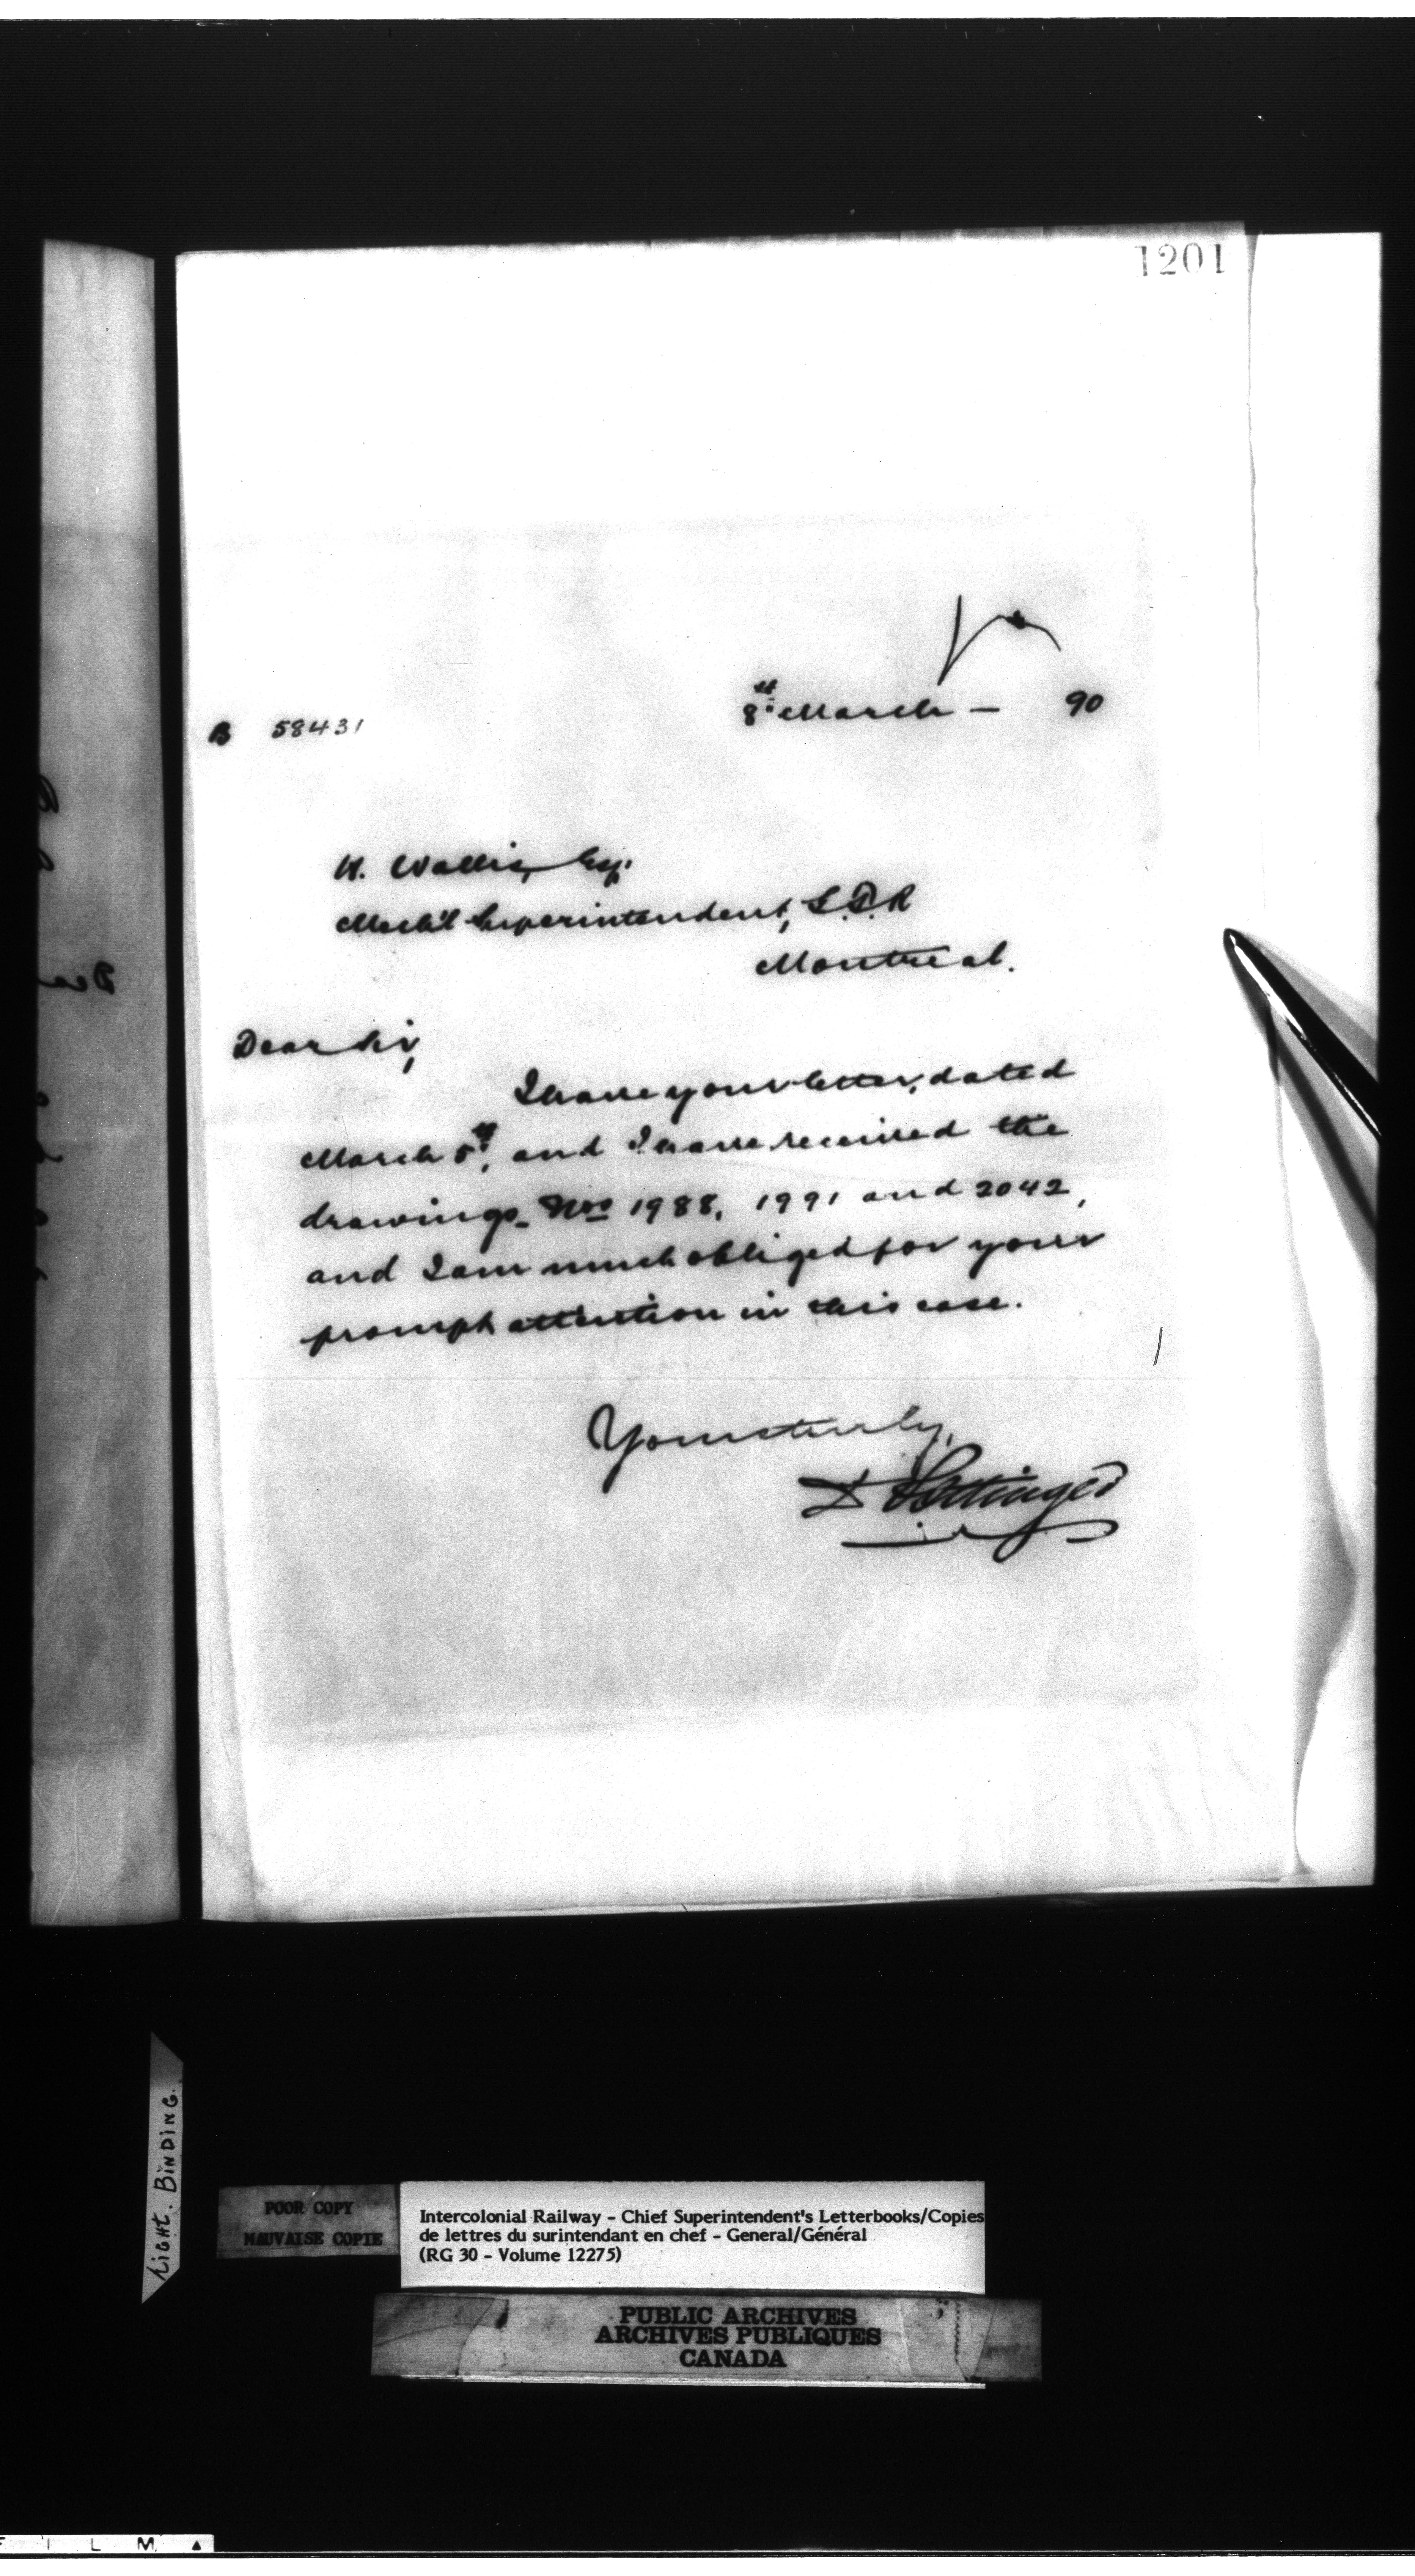 1201
8th March — 90
B 58431
H. Wallis, Esq.
Mech'l Superintendent, G.T.R
Montreal.
Dear Sir,
I have your letter, dated
March 5th, and I have received the
drawings Nos 1988, 1991 and 2042,
and I am much obliged for your
prompt attention in this case.
Yours truly,
D Pottinger
TIGHT. BINDING.
POOR COPY
MAUVAISE COPIE
Intercolonial Railway - Chief Superintendent's Letterbooks/Copies
de lettres du surintendant en chef - General/Général
(RG 30 - Volume 12275)
PUBLIC ARCHIVES
ARCHIVES PUBLIQUES
CANADA
F I L M